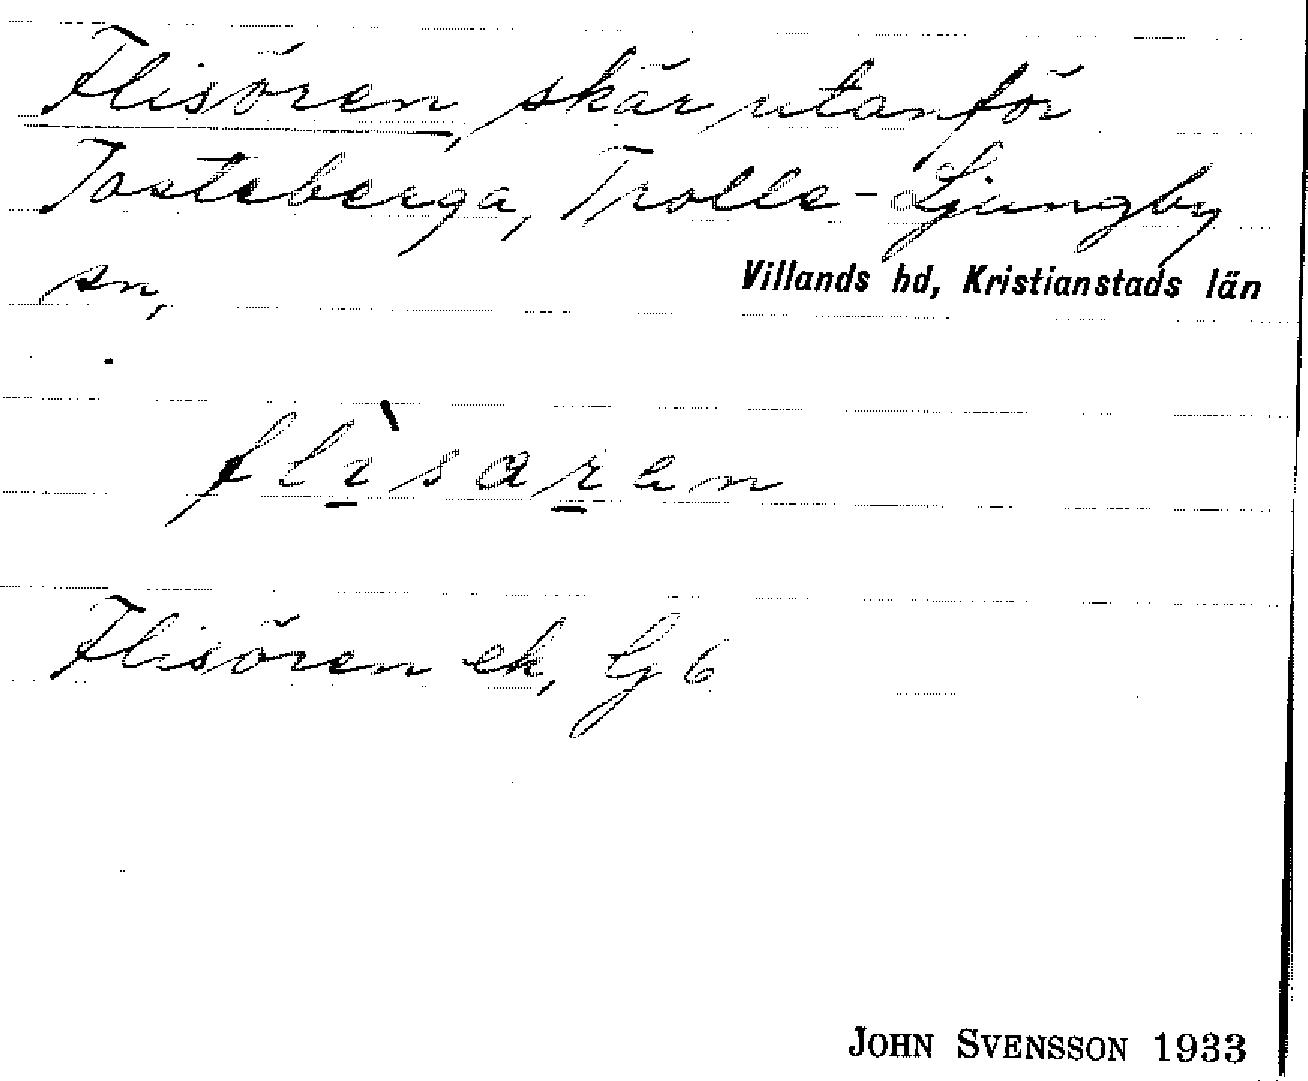 Flisören, skär utanför
Tosteberga, Trolle-Ljungby
sn,
Villands hd, Kristianstads län
flìsaren
Flisören ek, Lj 6
JOHN SVENSSON 1933